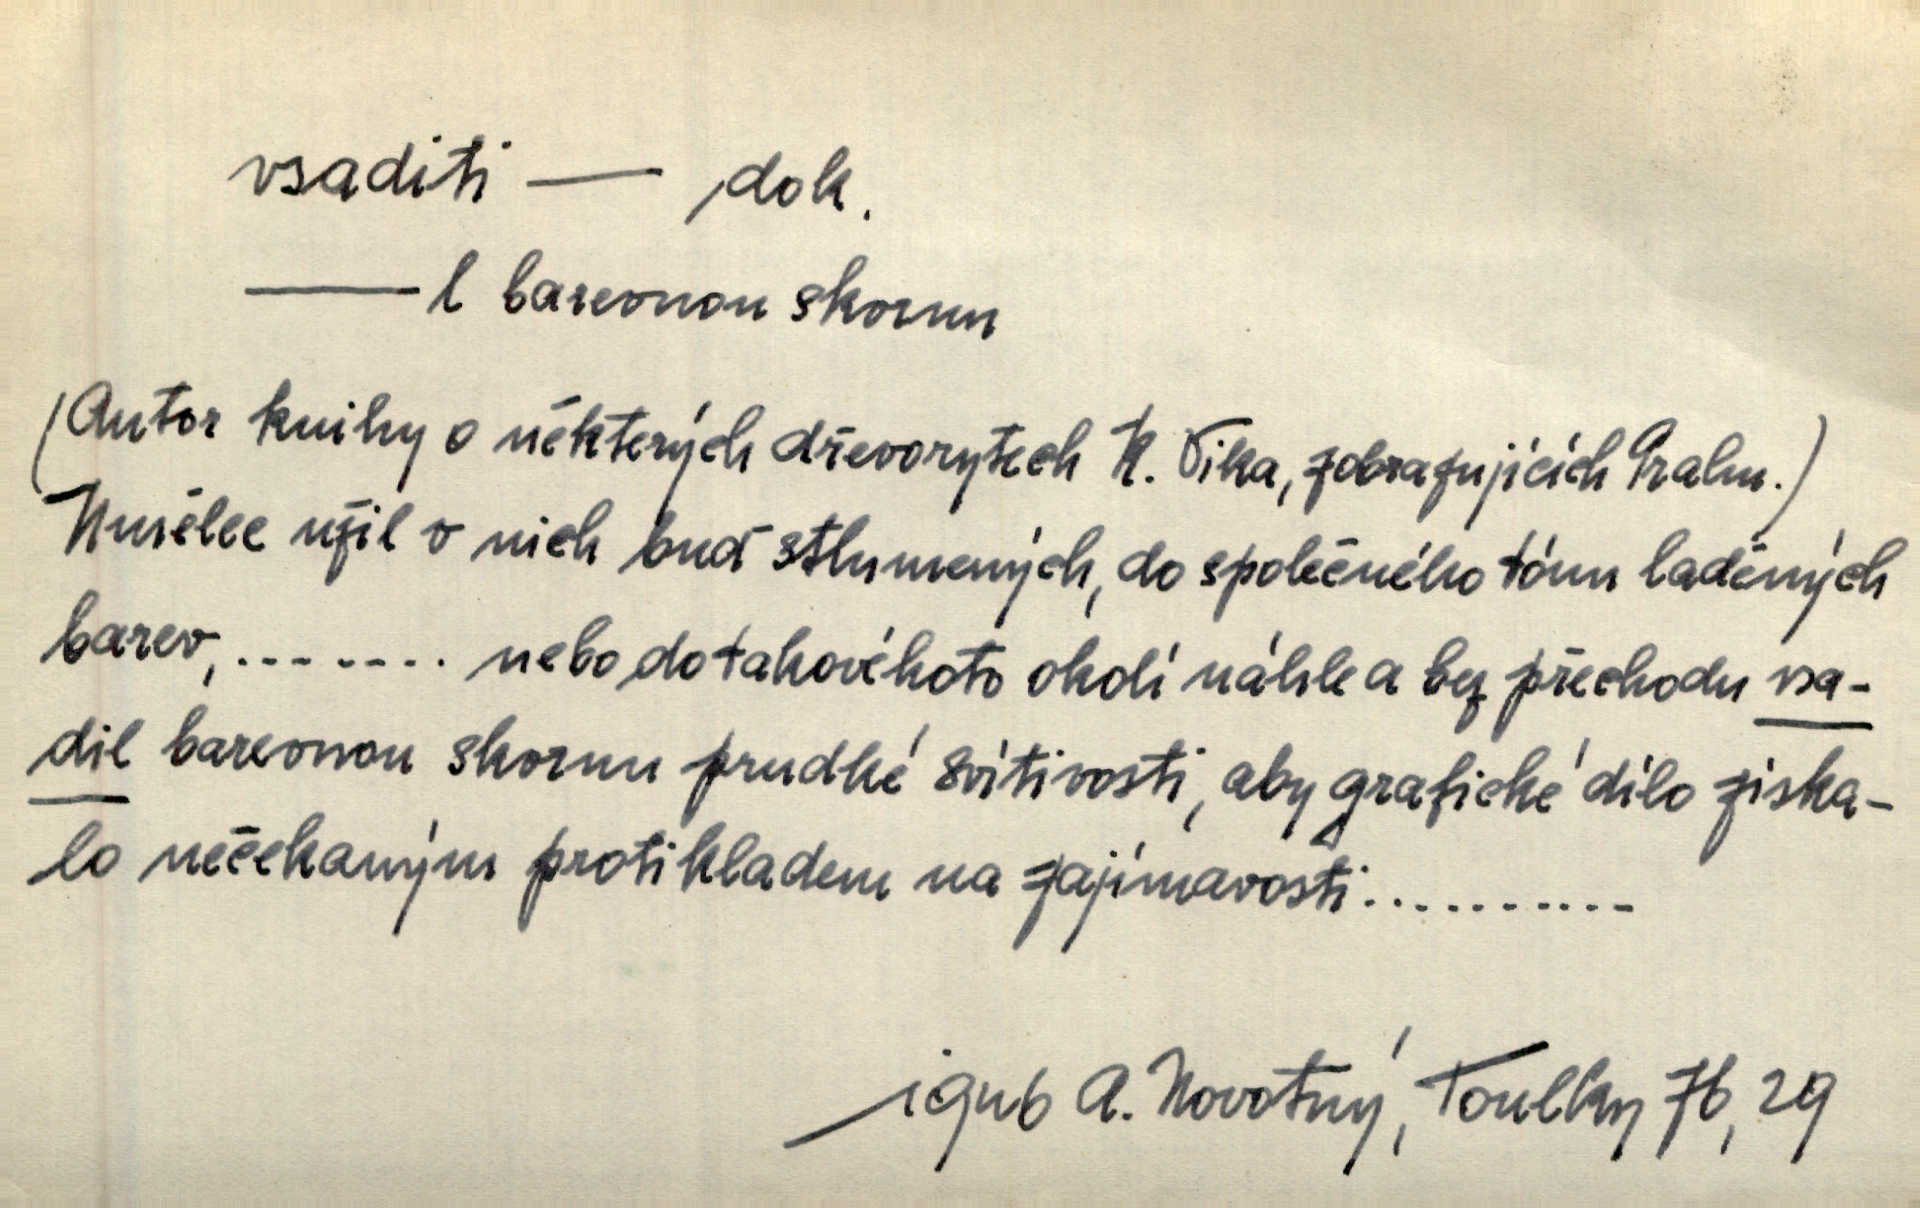 vsaditi — dok.
——l barevnou skvrnu
(Autor knihy o některých dřevorytech K. Vika, zobrazujících Prahu.)
Umělec užil v nich buď stlumených, do společného tónu laděných
barev, ........ nebo do takovéhoto okolí náhle a bez přechodu vsa-
dil barevnou skvrnu prudké svítivosti, aby grafické dílo získa-
lo nečekaným protikladem na zajímavosti...........
A. Novotný, Toulky 76, 29